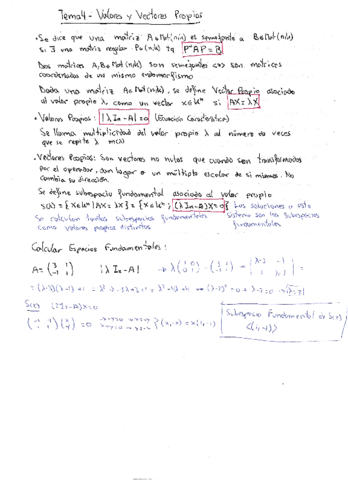 Tema 4 - Valores y Vectores Propios
• Se dice que una matriz A ∈ Mat(n,k) es semejante a B ∈ Mat(n,k)
si ∃ una matriz regular P tq P⁻¹AP = B
Dos matrices A, B ∈ Mat son semejantes <=> son matrices
coordenadas de un mismo endomorfismo
Dada una matriz A ∈ Mat(n,k), se define Vector Propio asociado
al valor propio λ, como un vector x ∈ kⁿ si AX = λX
• Valores Propios: |λIn - A| = 0 (Ecuación Característica)
Se llama multiplicidad del valor propio λ al número de veces
que se repite λ m(λ)
• Vectores Propios: Son vectores no nulos que cuando son transformados
por el operador, dan lugar a un múltiplo escalar de sí mismos. No
cambia su dirección.
Se define subespacio fundamental asociado al valor propio
s(λ) = {x ∈ kⁿ | AX = λX} = {x ∈ kⁿ; (λIn - A)X = 0} Las soluciones a este
Se calculan tantos subespacios fundamentales Sistema son los subespacios
como valores propios distintos fundamentales
Calcular Espacios Fundamentales:
A = |λIn - A|
S(2) (2In - A)X = 0
Subespacio Fundamental de S(2)